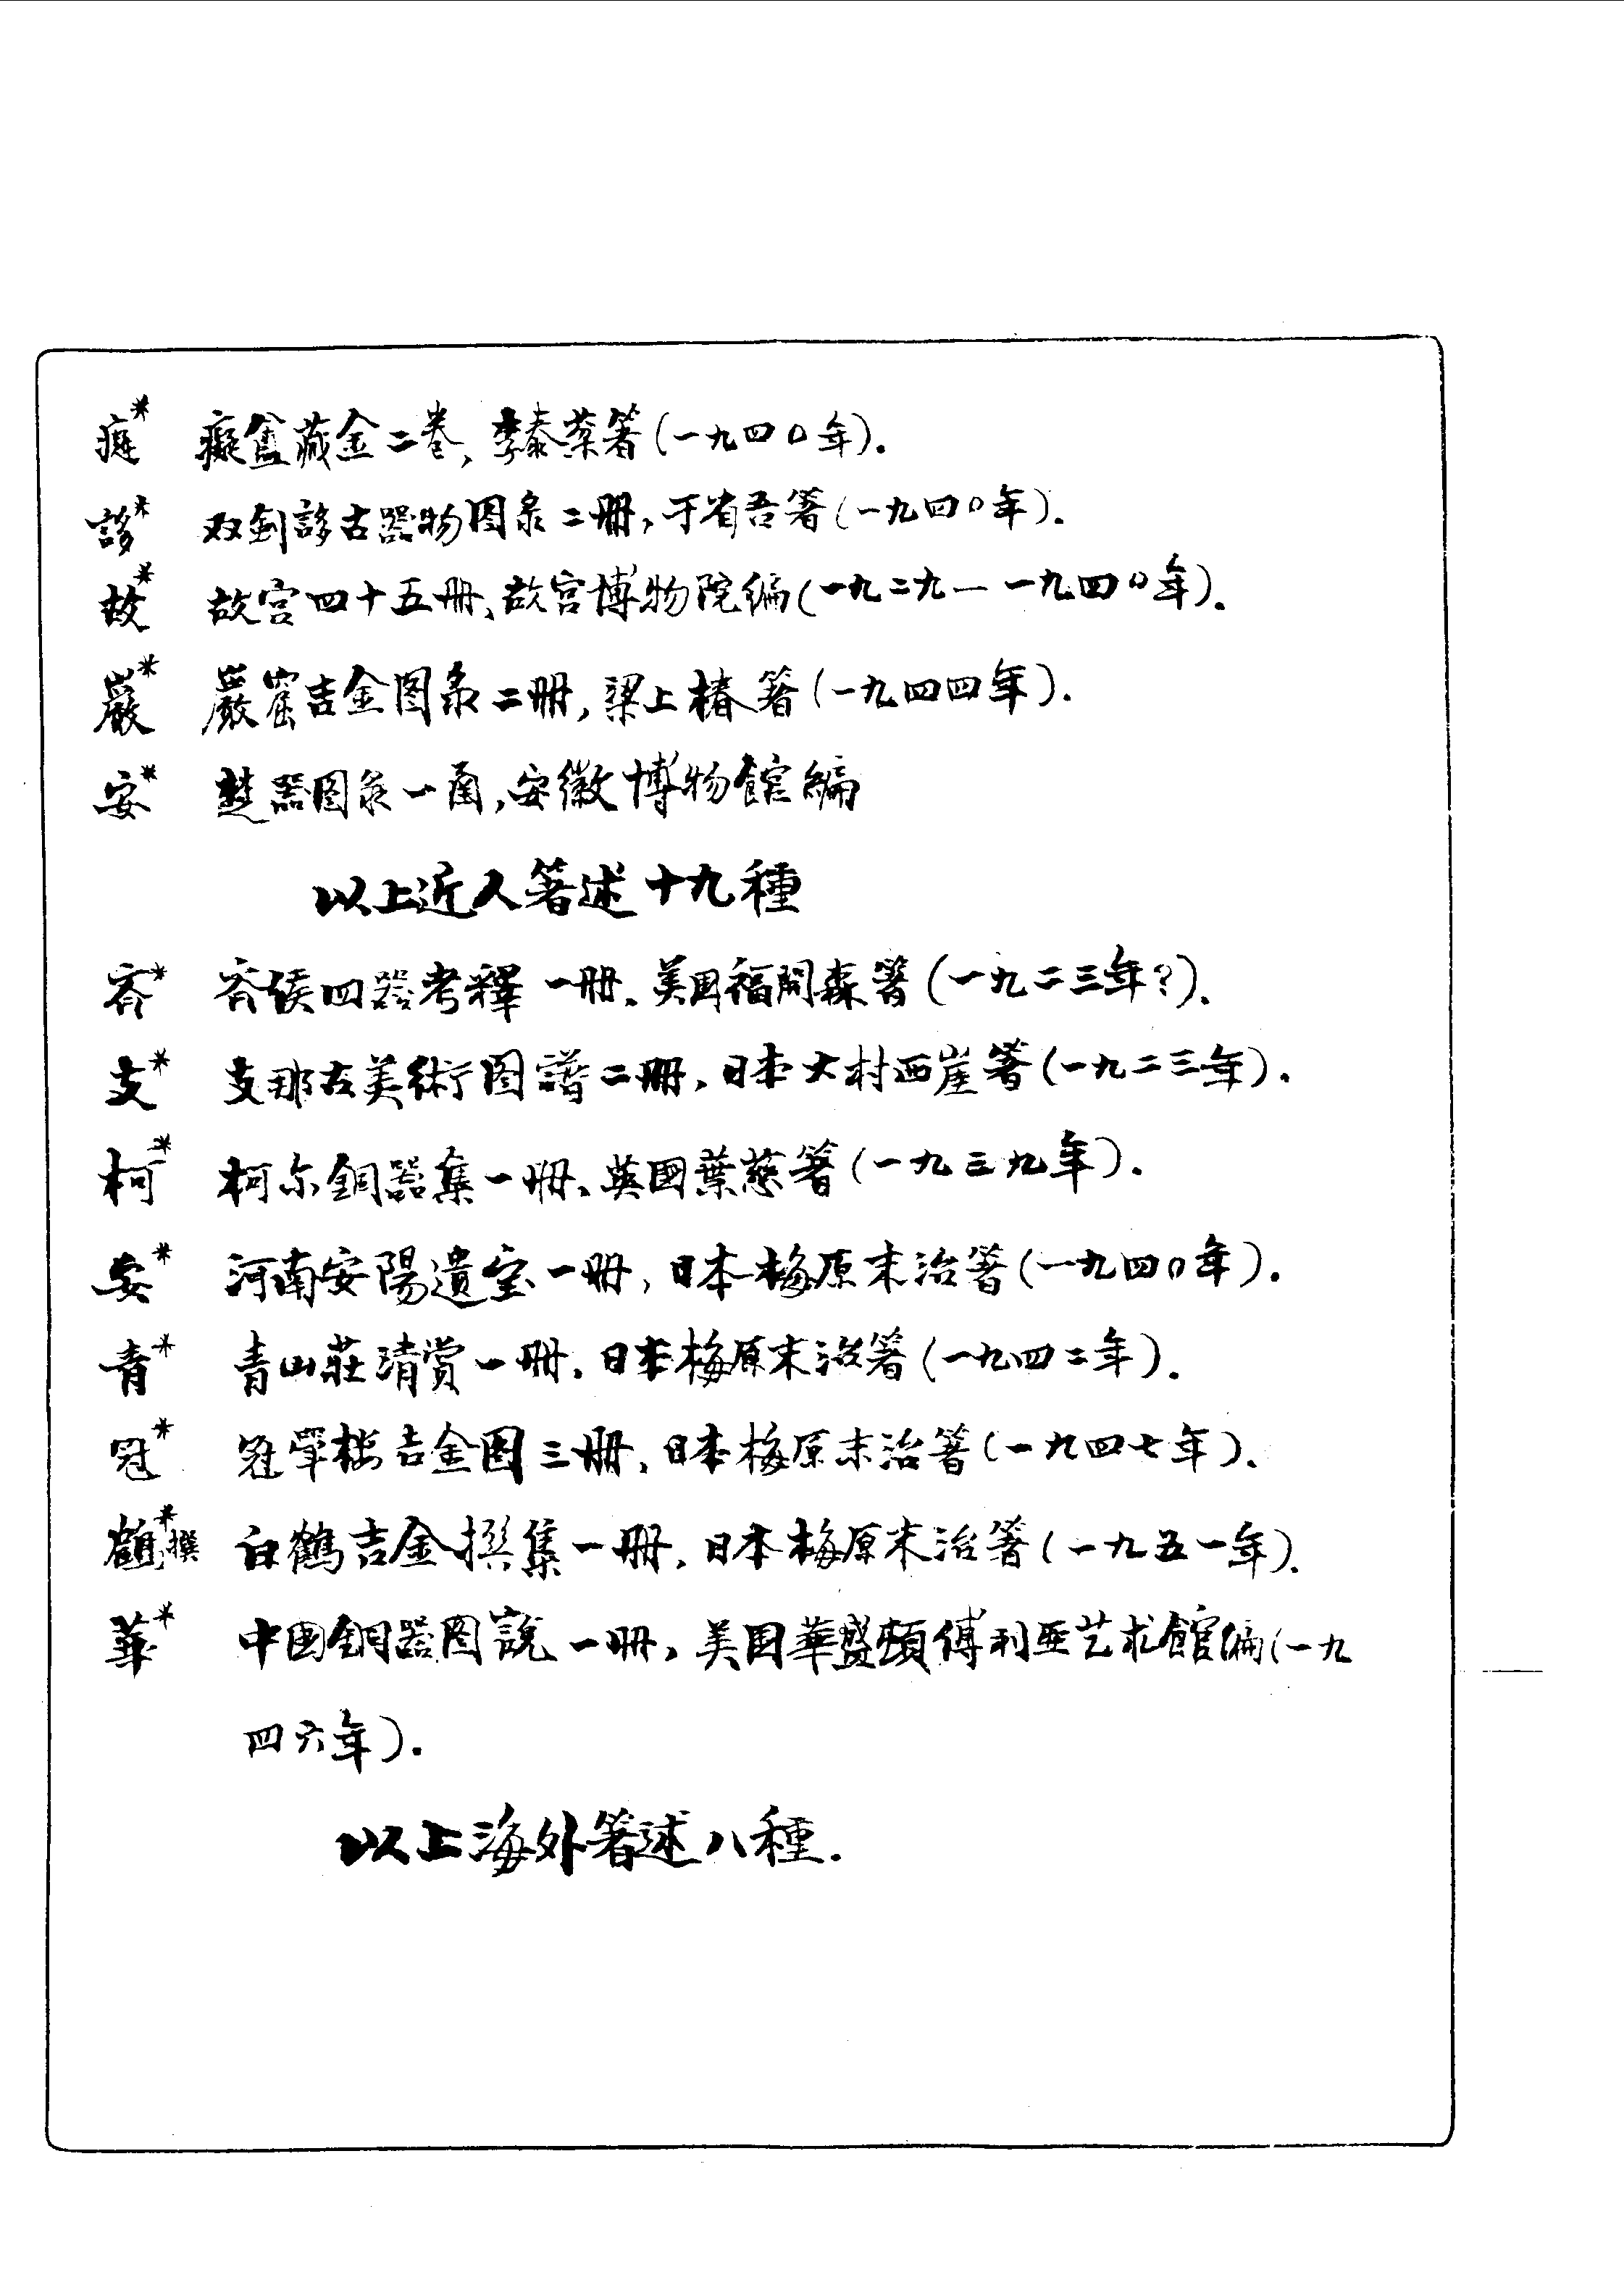 癡* 癡盦藏金二卷，李泰棻著（一九四〇年）.
誃* 双剑誃古器物图录二册，于省吾著（一九四〇年）.
故* 故宫四十五册、故宫博物院编（一九二九—一九四〇年）.
巖* 巖窟吉金图录二册，梁上椿著（一九四四年）.
安* 楚器图录一函，安徽博物館編
以上近人箸述十九種
齐* 齐侯四器考釋一册、美国福開森箸（一九二三年?）.
支* 支那古美術图譜二册，日本大村西崖箸（一九二三年）.
柯* 柯尔銅器集一册、英國葉慈箸（一九三九年）.
安* 河南安陽遺宝一册，日本梅原末治箸（一九四〇年）.
青* 青山莊清赏一册，日本梅原末治箸（一九四二年）.
冠* 冠斝楼吉金图三册，日本梅原末治箸（一九四七年）.
鶴撰* 白鶴吉金撰集一册，日本梅原末治箸（一九五一年）.
華* 中国銅器图說一册，美国華盛頓傅利亚艺术館编（一九
四六年）.
以上海外箸述八種.